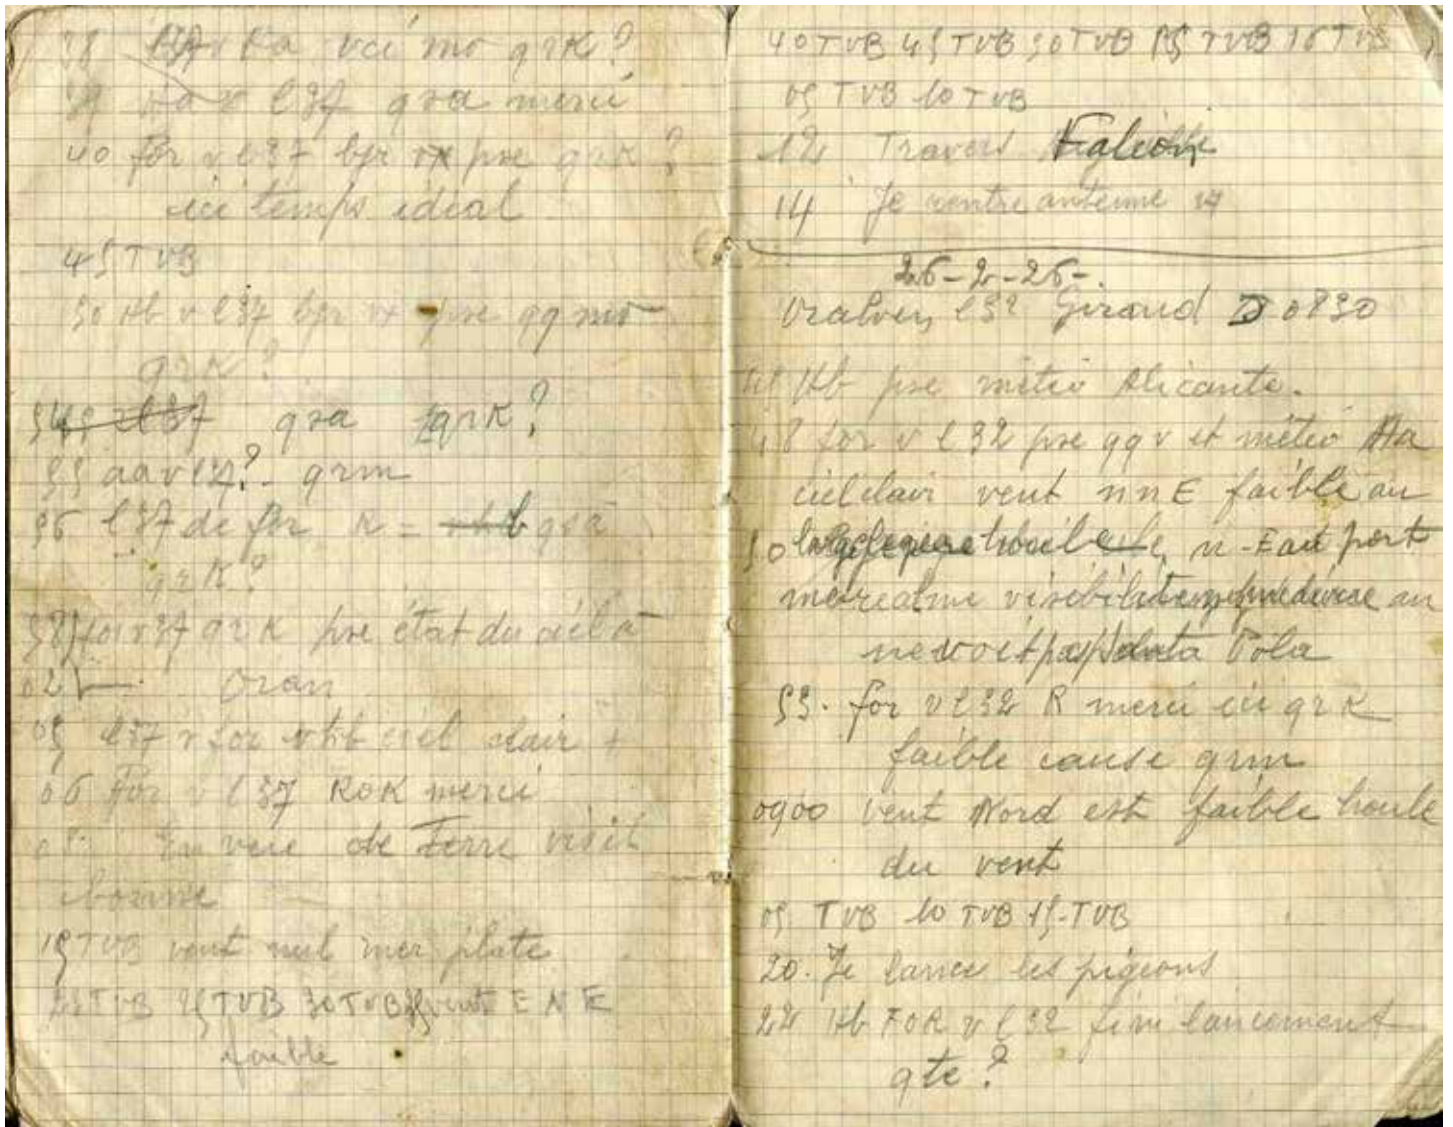 38 Ka v ici mo qrK?
39 v l37 qra merci
40 for v l37 bjr vx pse qrK?
ici temps idéal
45 TVB
50 Hb v l37 bjr vx pse qq mo
qrK?
qra qrK?
55 aa v l37? - qrm
56 l37 de for K = qsa
qrK?
58 for v 37 qrK pse état du ciel à
02 Oran
05 l37 v for v Hb ciel clair +
06 For v l37 ROK merci
En vue de Terre visib
bonne
15 TVB vent nul mer plate
TVB 25 TVB 30 TVB vent E N E
faible
40 TVB 45 TVB 50 TVB 55 TVB TVB
05 TVB 10 TVB
12 Travers
14 Je rentre antenne
26-2-26-
l32 Giraud D 0830
45 Hb pse météo Alicante.
48 for v l32 pse qq v et météo Ata
ciel clair vent nnE faible au
50 n-E au port
mer calme visibilité au
ne voit pas Santa Pola
53. for v l32 R merci ici qrK
faible cause qrm
0900 vent Nord est faible houle
du vent
05 TVB 10 TVB 15-TVB
20. Je lance les pigeons
22 Hb FOR v l32 fini lancement
qte?